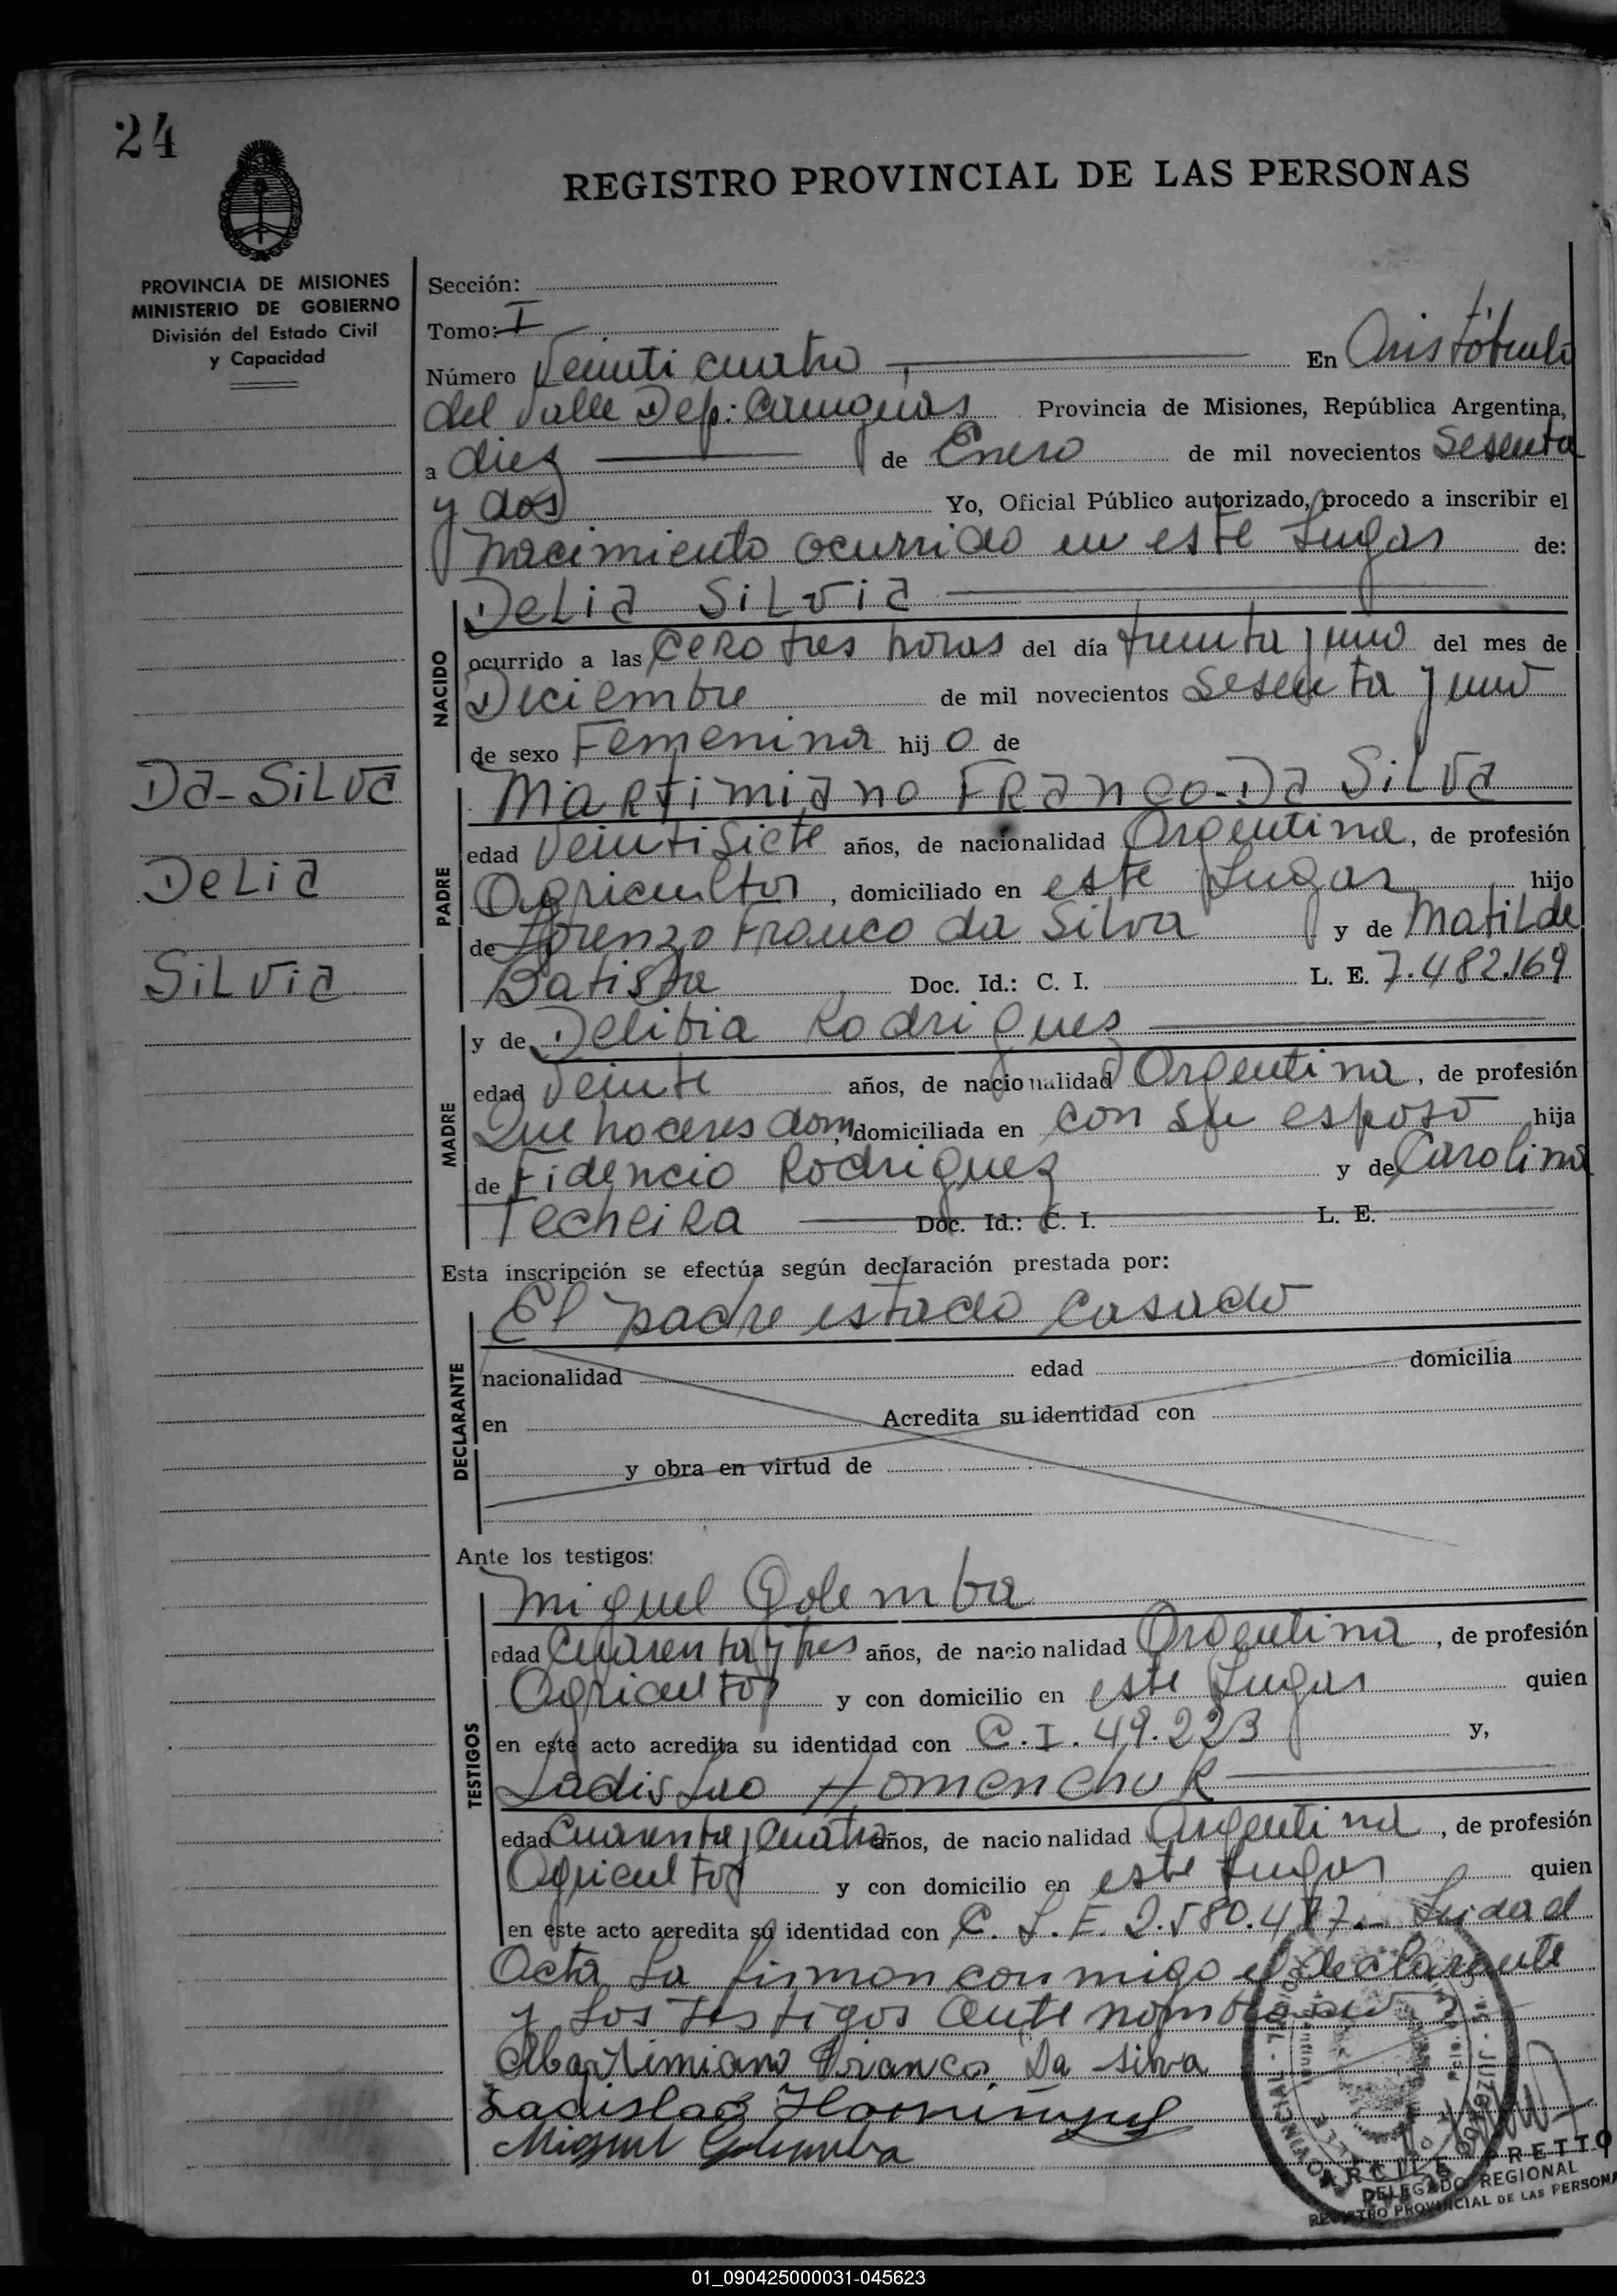 24
REGISTRO PROVINCIAL DE LAS PERSONAS
PROVINCIA DE MISIONES
MINISTERIO DE GOBIERNO
División del Estado Civil
y Capacidad
Da-Silva
Delia
Silvia
Sección:
Tomo: I
Número Veinti cuatro En Aristóbulo
del Valle Dep: Cainguas Provincia de Misiones, República Argentina,
a diez de Enero de mil novecientos Sesenta
y dos Yo, Oficial Público autorizado, procedo a inscribir el
nacimiento ocurrido en este Lugar de:
NACIDO
Delia Silvia
ocurrido a las Cero tres horas del día treinta y uno del mes de
Diciembre de mil novecientos Sesenta y uno
de sexo Femenina hij o de
PADRE
Martimiano Franco-Da Silva
edad Veintisiete años, de nacionalidad Argentina, de profesión
Agricultor, domiciliado en este Lugar hijo
de Lorenzo Franco da Silva y de Matilde
Batista Doc. Id.: C. I. L. E. 7.482.169
MADRE
y de Delibia Rodriguez
edad Veinte años, de nacionalidad Argentina, de profesión
Que haceres dom, domiciliada en con su esposo hija
de Fidencio Rodriguez y de Carolina
Techeira Doc. Id.: C. I. L. E.
Esta inscripción se efectúa según declaración prestada por:
DECLARANTE
El padre estado casado
nacionalidad edad domicilia
en Acredita su identidad con
y obra en virtud de
Ante los testigos:
TESTIGOS
Miguel Golemba
edad Cuarenta y tres años, de nacionalidad Argentina, de profesión
Agricultor y con domicilio en este Lugar quien
en este acto acredita su identidad con C.I. 49.223 y,
Ladislao Homenchuk
edad Cuarenta y Cuatro años, de nacionalidad Argentina, de profesión
Agricultor y con domicilio en este Lugar quien
en este acto acredita su identidad con C. L.E. 2.580.477.- Leida el
Acta La firman conmigo el declarante
y Los testigos Ante nombrados
Martimiano Franco Da silva
Ladislao
Miguel Golemba
DELEGADO REGIONAL
REGISTRO PROVINCIAL DE LAS PERSONAS
01_090425000031-045623